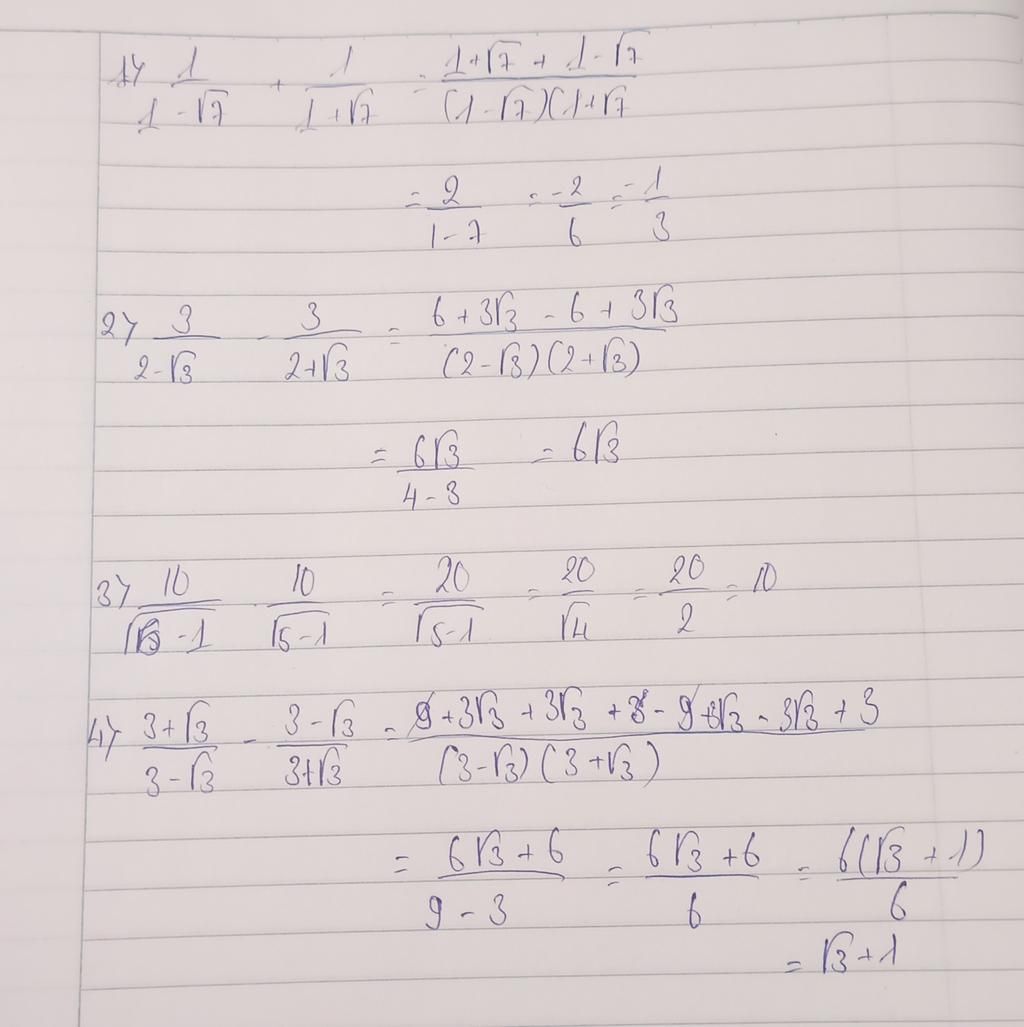 1) 1/(1-√7) + 1/(1+√7) = (1+√7 + 1-√7)/((1-√7)(1+√7)
= 2/(1-7) = -2/6 = -1/3
2) 3/(2-√3) - 3/(2+√3) = (6+3√3 - 6+3√3)/((2-√3)(2+√3))
= 6√3/(4-3) = 6√3
3) 10/(√5-1) - 10/(√5-1) = 20/√(5-1) = 20/√4 = 20/2 = 10
4) (3+√3)/(3-√3) - (3-√3)/(3+√3) = (9+3√3+3√3+3-9+3√3-3√3+3)/((3-√3)(3+√3))
= (6√3+6)/(9-3) = (6√3+6)/6 = 6(√3+1)/6
= √3+1